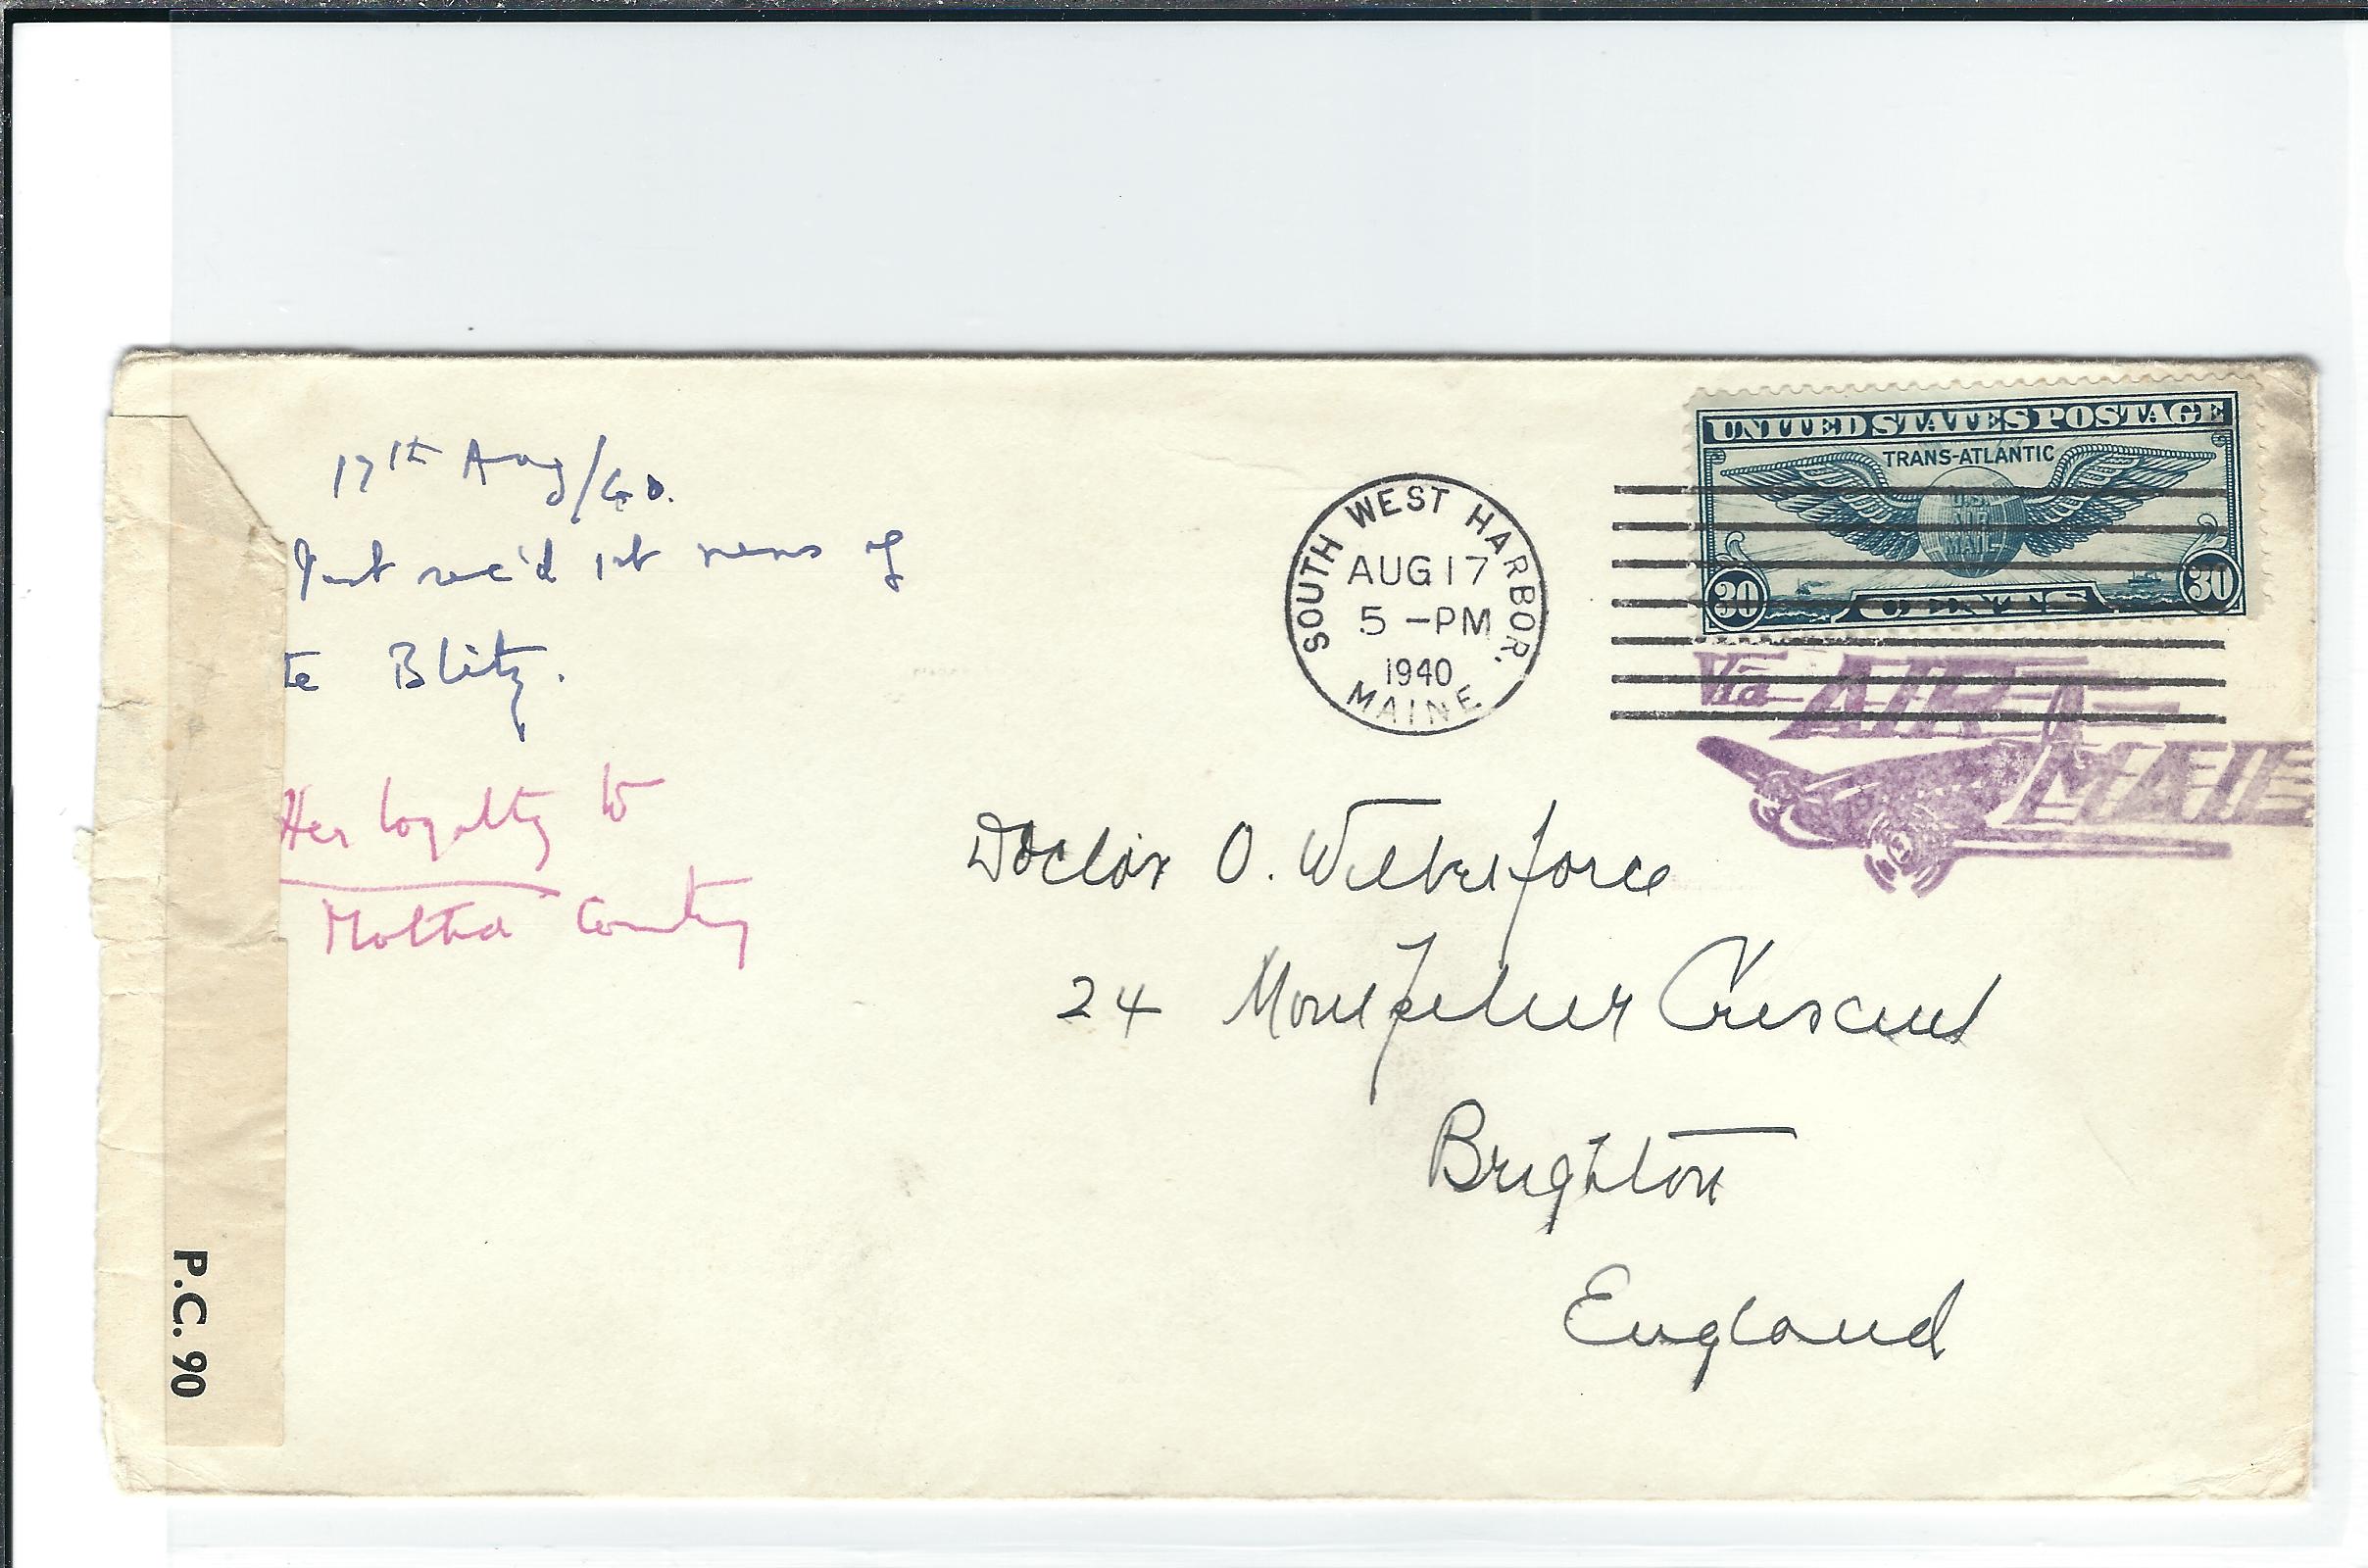 17th Aug/40.
Just rec'd 1st news of
te Blitz.
Her loyalty to
Mother Country
SOUTH WEST HARBOR.
AUG 17
5-PM
1940
MAINE
UNITED STATES POSTAGE
TRANS-ATLANTIC
U.S.
AIR
MAIL
30 CENTS 30
Via AIR
MAIL
Doctor O. Wilberforce
24 Montpelier Crescent
Brighton
England
P.C. 90